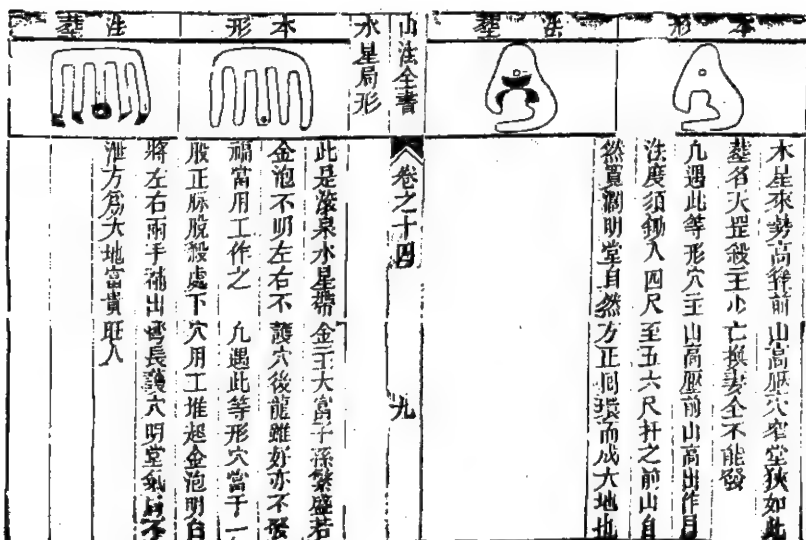 本形
葬法
木星來勢高聳前山高壓穴窄堂狹如此
葬名大罡殺主少亡換妻全不能發
凡遇此等形穴主山高壓前山高出作用
法度須鋤入四尺至五六尺扞之前山自
然寬濶明堂自然方正囘環而成大地也
山法全書
卷之十四
九
水星局形
本形
葬法
此是漾泉水星帶金主大富子孫繁盛若
金泡不明左右不護穴後龍雖好亦不發
福當用工作之 凡遇此等形穴當于一
股正脉脫殺處下穴用工堆起金泡明白
將左右兩手補出灣長護穴明堂氣不
泄方為大地富貴旺人